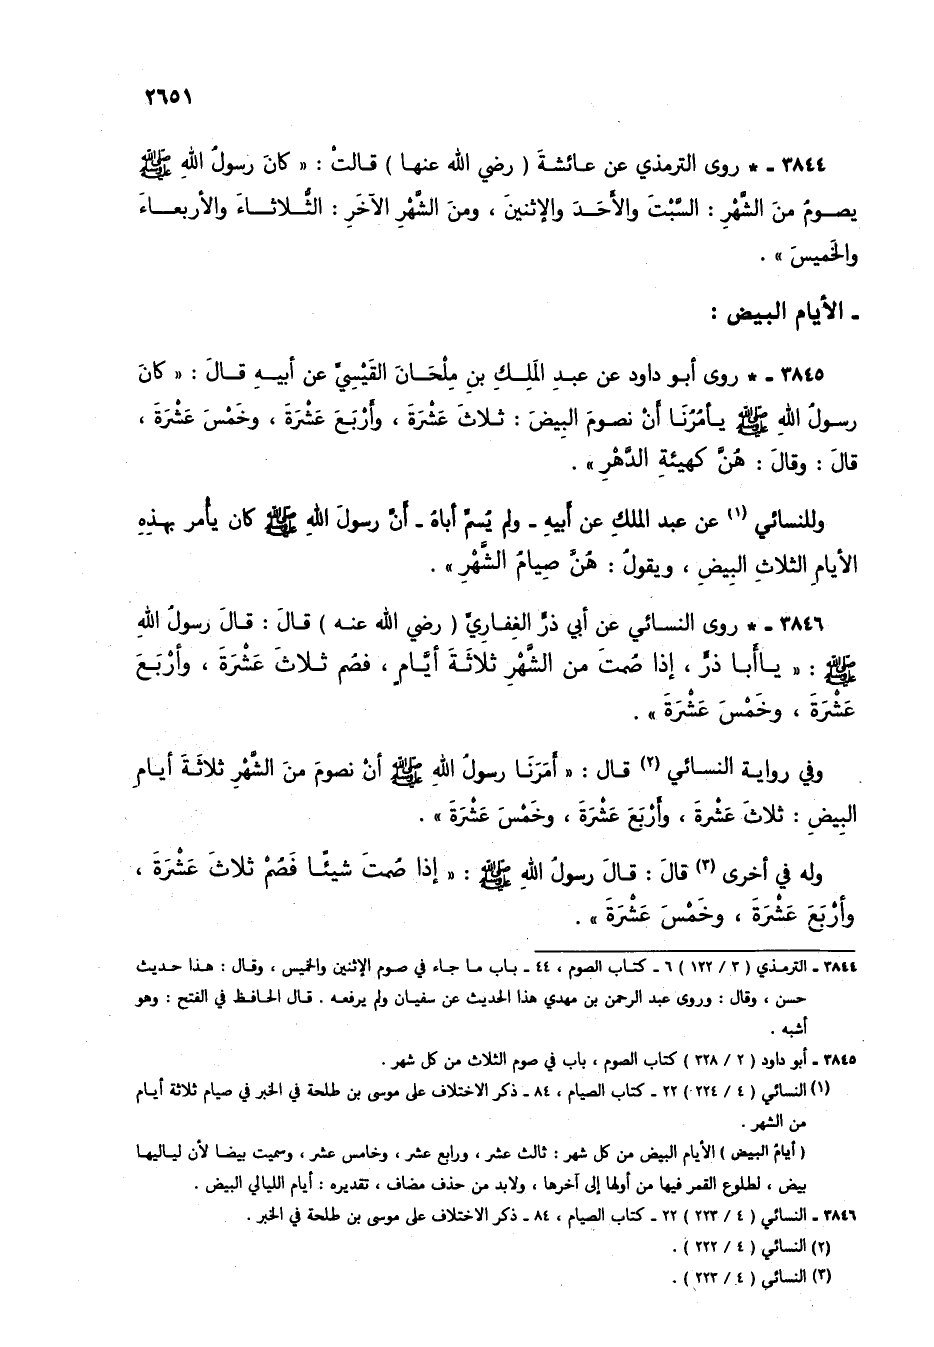 ٢٦٥١
٣٨٤٤ ـ * روى الترمذي عن عائشةَ ( رضي الله عنها ) قالتْ : « كانَ رسولُ اللهِ ﷺ
يصومُ منَ الشَّهْرِ : السَّبْتَ والأَحَدَ والإثنينَ ، ومنَ الشَّهْرِ الآخَرِ : الثُّلاثاءَ والأربعاءَ
والخَميسَ » .
ـ الأيام البيض :
٣٨٤٥ ـ * روى أبو داود عن عبدِ المَلِكِ بنِ مِلْحَانَ القَيْسِيِّ عن أبيهِ قالَ : « كانَ
رسولُ اللهِ ﷺ يأمُرُنَا أنْ نصومَ البيضَ : ثلاثَ عَشْرَةَ ، وأَرْبَعَ عَشْرَةَ ، وخَمْسَ عَشْرَةَ ،
قالَ : وقالَ : هُنَّ كهيئةِ الدَّهْرِ » .
وللنسائي (١) عن عبد الملكِ عن أبيهِ ـ ولم يُسمِّ أباهُ ـ أنَّ رسولَ اللهِ ﷺ كان يأمر بهذهِ
الأيامِ الثلاثِ البيضِ ، ويقولُ : هُنَّ صيامُ الشَّهْرِ » .
٣٨٤٦ ـ * روى النسائي عن أبي ذرٍّ الغفاريِّ ( رضي الله عنه ) قالَ : قالَ رسولُ اللهِ
ﷺ : « ياأبا ذرٍّ ، إذا صُمتَ من الشَّهْرِ ثلاثَةَ أيَّامٍ ، فصُم ثلاثَ عَشْرَةَ ، وأَرْبَعَ
عَشْرَةَ ، وخَمْسَ عَشْرَةَ » .
وفي رواية النسائي (٢) قال : « أمَرَنَا رسولُ اللهِ ﷺ أنْ نصومَ منَ الشَّهْرِ ثلاثَةَ أيامِ
البيضِ : ثلاثَ عَشْرةَ ، وأَرْبَعَ عَشْرَةَ ، وخَمْسَ عَشْرَةَ » .
وله في أخرى (٣) قالَ : قالَ رسولُ اللهِ ﷺ : « إذا صُمتَ شيئًا فَصُمْ ثلاثَ عَشْرَةَ ،
وأَرْبَعَ عَشْرَةَ ، وخَمْسَ عَشْرَةَ » .
٣٨٤٤ ـ الترمذي ( ٣ / ١٢٢ ) ٦ ـ كتاب الصوم ، ٤٤ ـ باب ما جاء في صوم الإثنين والخميس ، وقال : هذا حديث
حسن ، وقال : وروى عبد الرحمن بن مهدي هذا الحديث عن سفيان ولم يرفعه . قال الحافظ في الفتح : وهو
أشبه .
٣٨٤٥ ـ أبو داود ( ٢ / ٣٢٨ ) كتاب الصوم ، باب في صوم الثلاث من كل شهر .
(١) النسائي ( ٤ / ٢٢٤ ) ٢٢ ـ كتاب الصيام ، ٨٤ ـ ذكر الاختلاف على موسى بن طلحة في الخبر في صيام ثلاثة أيام
من الشهر .
( أيامُ البيض ) الأيام البيض من كل شهر : ثالث عشر ، ورابع عشر ، وخامس عشر ، وسميت بيضا لأن لياليها
بيض ، لطلوع القمر فيها من أولها إلى آخرها ، ولابد من حذف مضاف ، تقديره : أيام الليالي البيض .
٣٨٤٦ ـ النسائي ( ٤ / ٢٢٣ ) ٢٢ ـ كتاب الصيام ، ٨٤ ـ ذكر الاختلاف على موسى بن طلحة في الخبر .
(٢) النسائي ( ٤ / ٢٢٢ ) .
(٣) النسائي ( ٤ / ٢٢٣ ) .